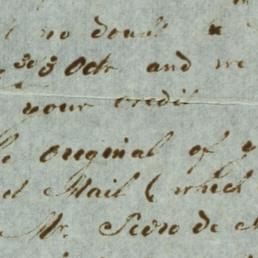 no doubt a
30 Octr and we
your credit
original of y
Mail (which
Mr. Pedro de M